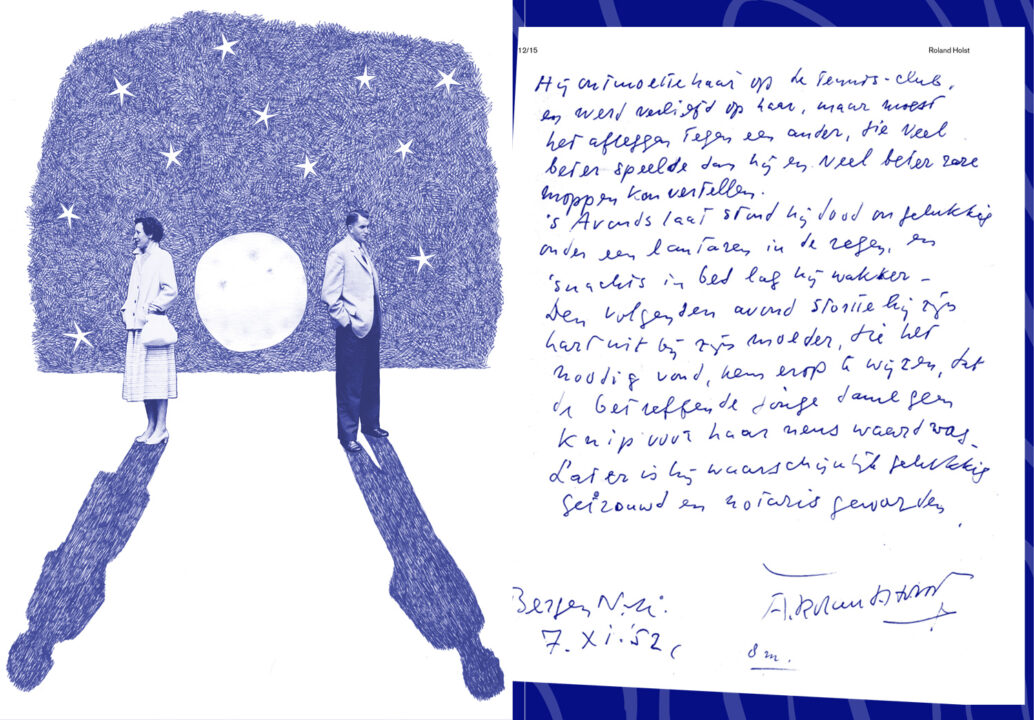 12/15
Roland Holst
Hij ontmoette haar op de tennis-club,
en werd verliefd op haar, maar moest
het afleggen tegen een ander, die veel
beter speelde dan hij en veel beter rare
moppen kon vertellen.
's Avonds laat stond hij dood ongelukkig
onder een lantaren in de regen, en
'snachts in bed lag hij wakker –
Den volgenden avond stortte hij zijn
hart uit bij zijn moeder, die het
noodig vond, hem erop te wijzen, dat
de betreffende jonge dame geen
knip voor haar neus waard was.
Later is hij waarschijnlijk gelukkig
getrouwd en notaris geworden.
A. Roland Holst
Bergen N.H.
7. XI. '52,
8 m.